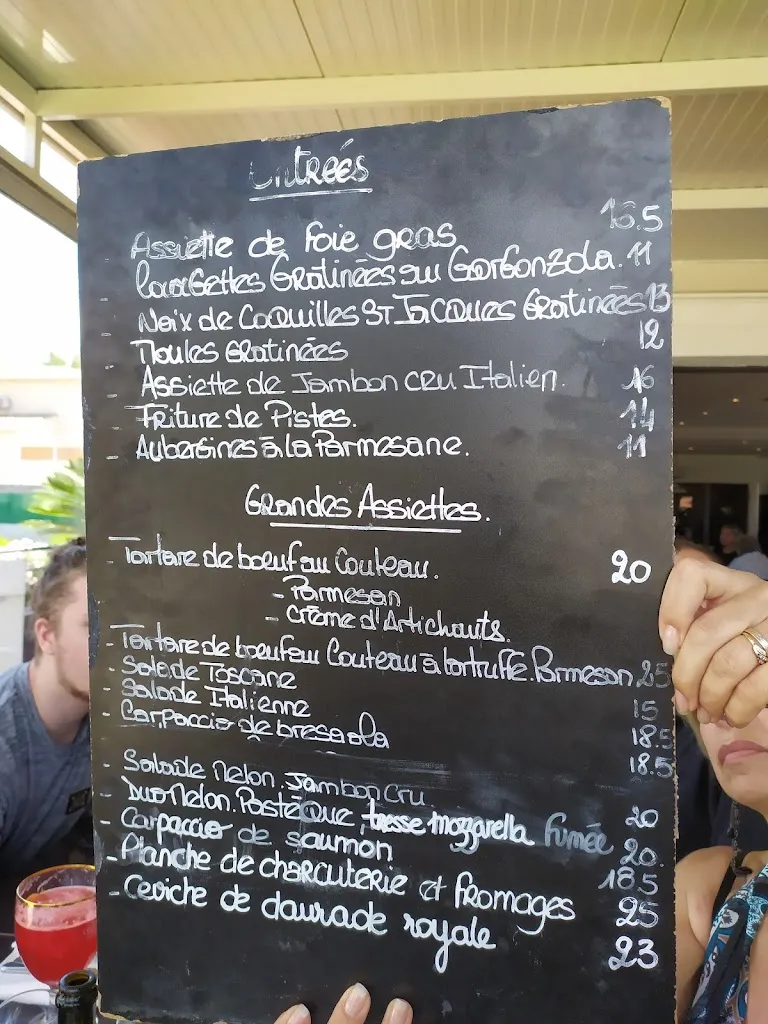 Entrées
Assiette de foie gras 16.5
Courgettes Gratinées au Gorgonzola. 11
- Noix de Coquilles St Jacques Gratinées 13
- Moules Gratinées 12
- Assiette de Jambon cru Italien. 16
- Friture de Pistes. 14
- Aubergines à la Parmesane. 11
Grandes Assiettes.
- Tartare de boeuf au Couteau. 20
- Parmesan
- Crème d'Artichauts.
- Tartare de boeuf au Couteau à la truffe. Parmesan 25
- Salade Toscane 15
- Salade Italienne 18.5
- Carpaccio de bresaola 18.5
- Salade Melon. Jambon Cru. 20
- Duo Melon. Pastèque, tresse mozzarella fumée 20.
- Carpaccio de saumon 18.5
- Planche de charcuterie et fromages 25
- Ceviche de daurade royale 23